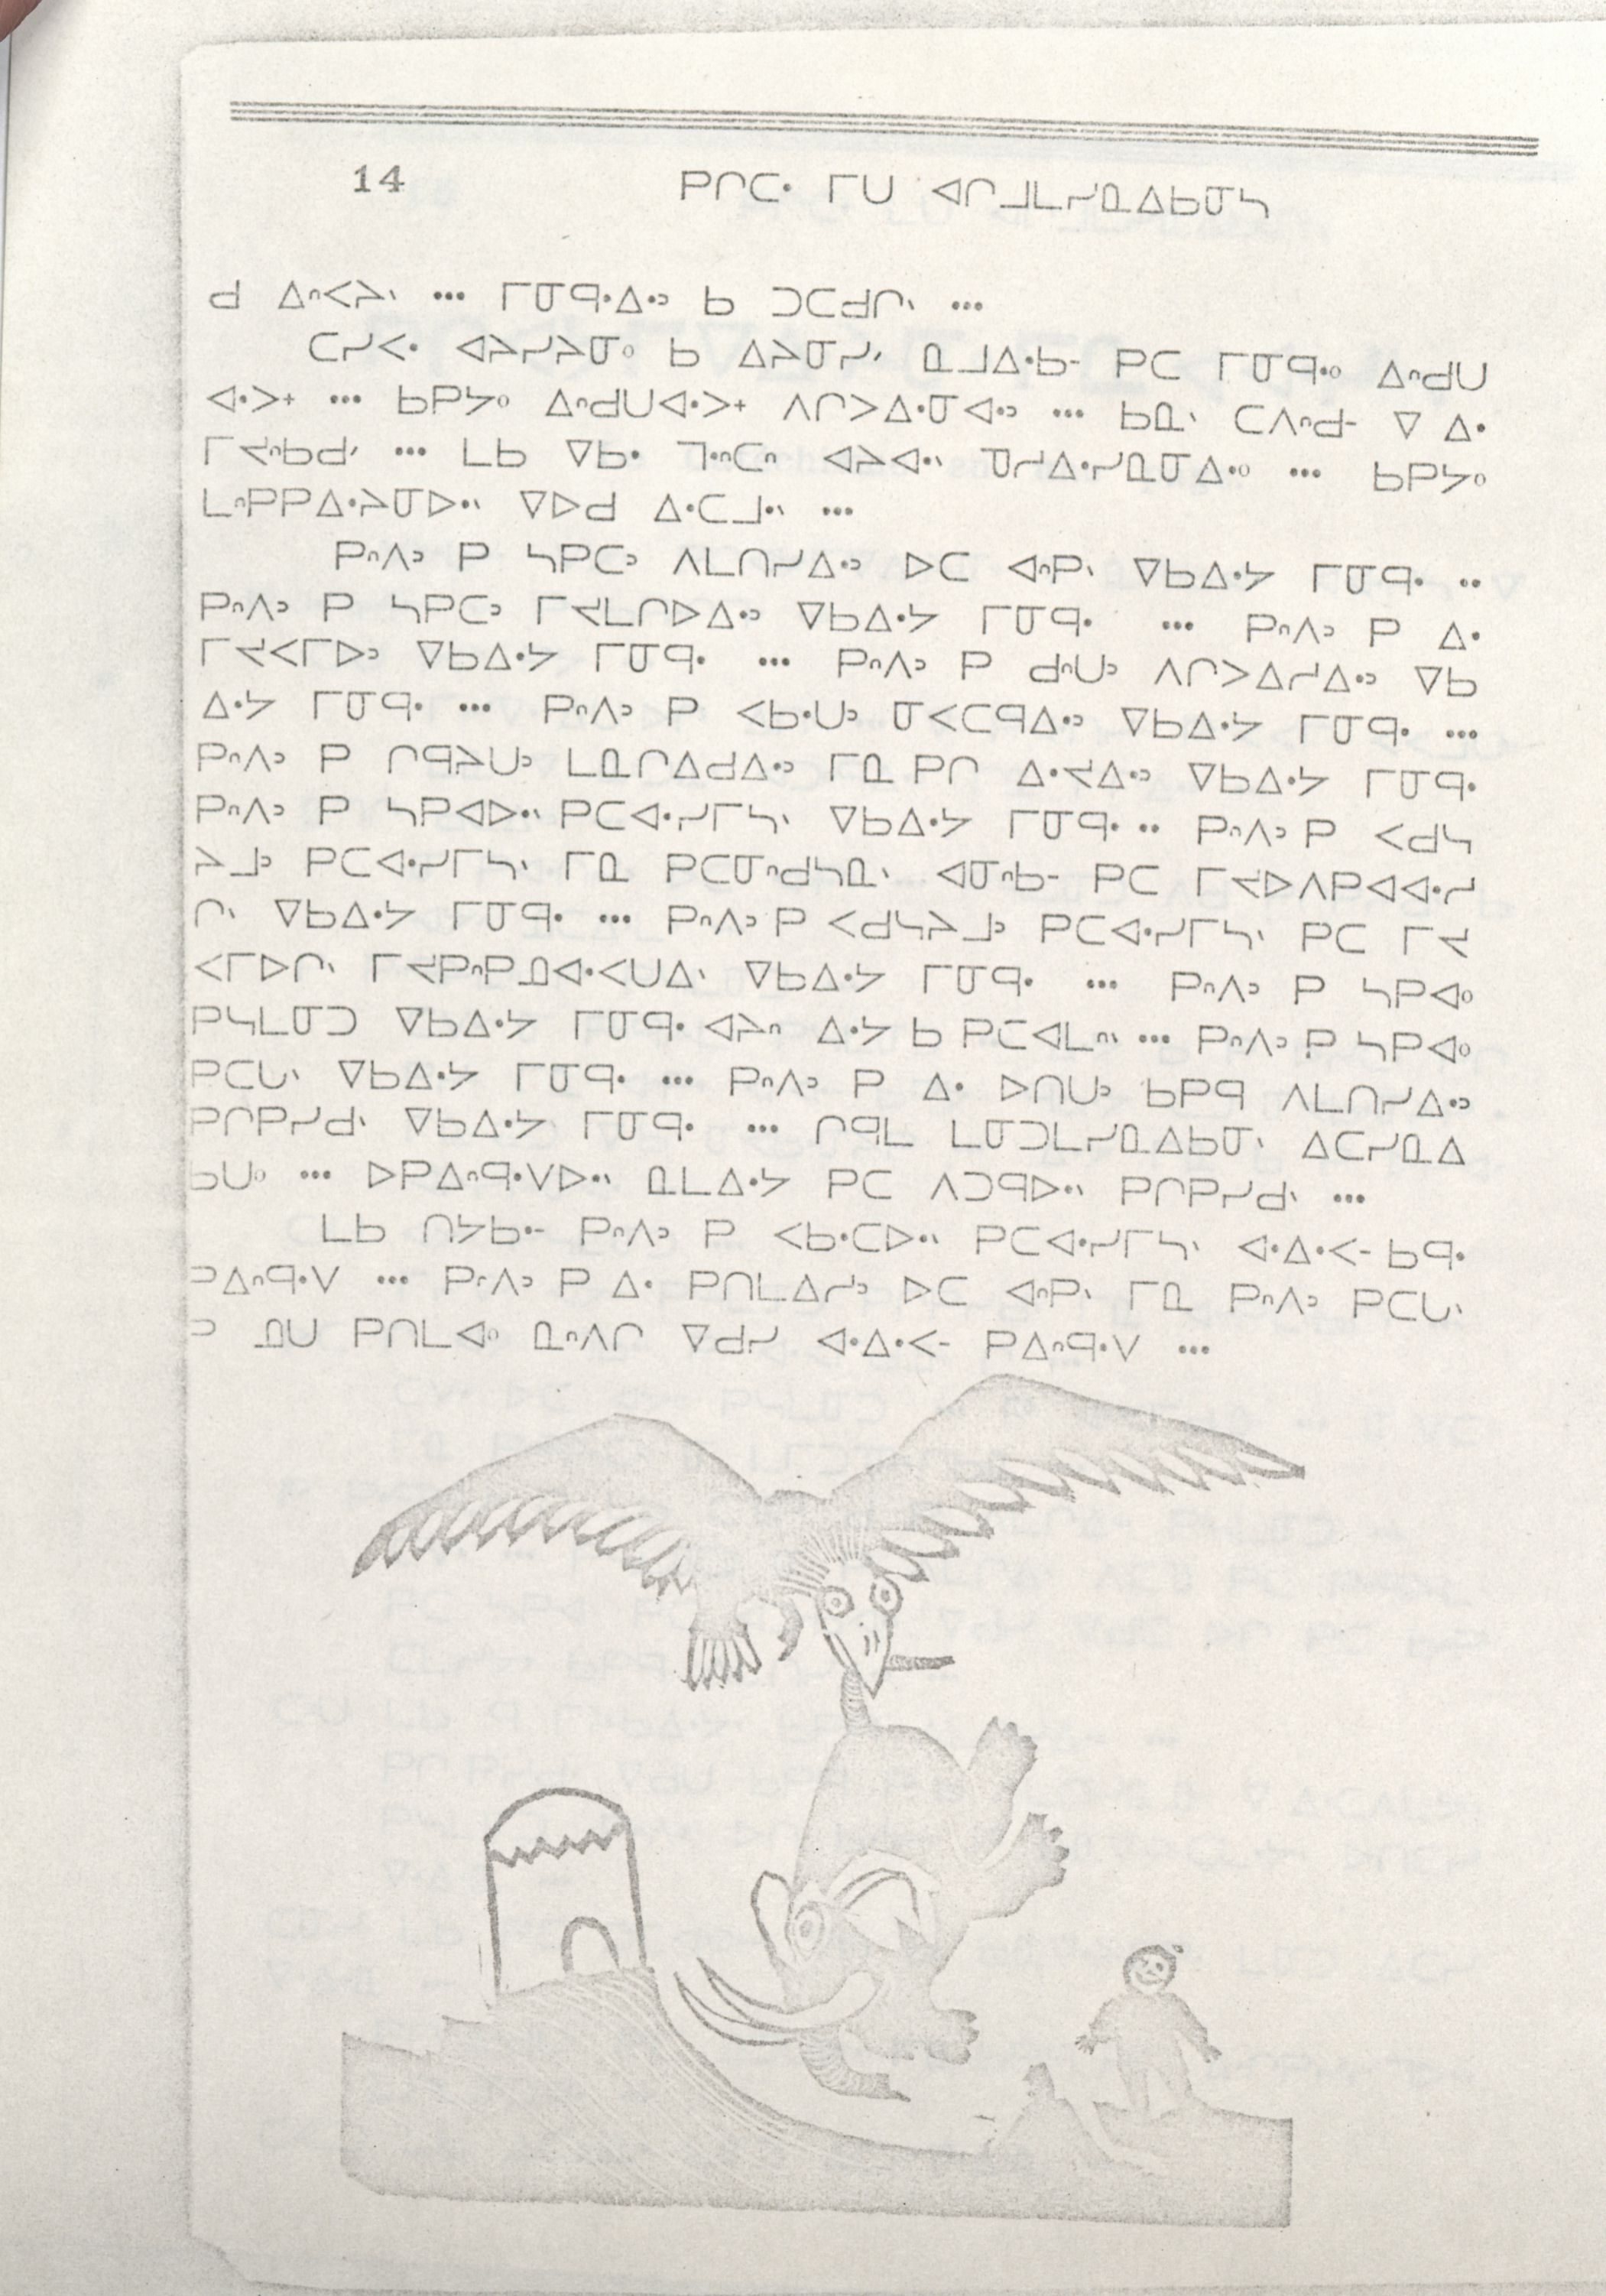 14 ᑭᒋᑕᐧ ᒥᑌ ᐊᒋᒧᒪᓯᓇᐃᑲᓂᓴ
ᑯ ᐃᐢᐸᔨᐠ ... ᒥᓂᑫᐧᐃᐧᐣ ᑲ ᑐᑕᑯᒋᐠ ...
ᑕᓯᐸᐧ ᐊᔨᓯᔨᓂᐤ ᑲ ᐃᔨᓂᓯᐟ ᓇᒧᐃᐧᑲᐨ ᑭᑕ ᒥᓂᑫᐧᐤ ᐃᐢᑯᑌ
ᐊᐧᐳᕀ ... ᑲᑭᔭᐤ ᐃᐢᑯᑌᐊᐧᐳᕀ ᐱᒋᐳᐃᐧᓂᐊᐧᐣ ... ᑲᓇᐠ ᑕᐱᐢᑯᐨ ᐁ ᐃᐧ
ᒥᔪᐢᑲᑯᐟ ... ᒪᑲ ᐁᑲᐧ ᒣᐧᐢᑕᐢ ᐊᔨᐊᐧᐠ ᑯᓯᐃᐧᓯᓇᓂᐃᐧᐤ ... ᑲᑭᔭᐤ
ᒪᐢᑭᑭᐃᐧᔨᓂᐅᐧᐠ ᐁᐅᑯ ᐃᐧᑕᒧᐧᐠ ...
ᑭᐢᐱᐣ ᑭ ᓴᑭᑕᐣ ᐱᒪᑎᓯᐃᐧᐣ ᐅᑕ ᐊᐢᑭᐠ ᐁᑲᐃᐧᔭ ᒥᓂᑫᐧ ..
ᑭᐢᐱᐣ ᑭ ᓴᑭᑕᐣ ᒥᔪᒪᒋᐅᐃᐧᐣ ᐁᑲᐃᐧᔭ ᒥᓂᑫᐧ ... ᑭᐢᐱᐣ ᑭ ᐃᐧ
ᒥᔪᐸᒥᐅᐣ ᐁᑲᐃᐧᔭ ᒥᓂᑫᐧ ... ᑭᐢᐱᐣ ᑭ ᑯᐢᑌᐣ ᐱᒋᐳᐃᓯᐃᐧᐣ ᐁᑲ
ᐃᐧᔭ ᒥᓂᑫᐧ ... ᑭᐢᐱᐣ ᑭ ᐸᑲᐧᑌᐣ ᓂᐸᑕᑫᐃᐧᐣ ᐁᑲᐃᐧᔭ ᒥᓂᑫᐧ ...
ᑭᐢᐱᐣ ᑭ ᒋᑫᔨᑌᐣ ᒪᓇᒋᐃᑯᐃᐧᐣ ᒥᓇ ᑭᒋ ᐃᐧᔪᐃᐧᐣ ᐁᑲᐃᐧᔭ ᒥᓂᑫᐧ
ᑭᐢᐱᐣ ᑭ ᓴᑭᐊᐅᐧᐠ ᑭᑕᐊᐧᓯᒥᓴᐠ ᐁᑲᐃᐧᔭ ᒥᓂᑫᐧ .. ᑭᐢᐱᐣ ᑭ ᐸᑯᓴ
ᔨᒧᐣ ᑭᑕᐊᐧᓯᒥᓴᐠ ᒥᓇ ᑭᑕᓂᐢᑯᓴᓇᐠ ᐊᓂᐢᑲᐨ ᑭᑕ ᒥᔪᐅᐱᑭᐊᐊᐧᓯ
ᒋᐠ ᐁᑲᐃᐧᔭ ᒥᓂᑫᐧ ... ᑭᐢᐱᐣ ᑭ ᐸᑯᓴᔨᒧᐣ ᑭᑕᐊᐧᓯᒥᓴᐠ ᑭᑕ ᒥᔪ
ᐸᒥᐅᒋᐠ ᒥᔪᑭᐢᑭᓄᐊᐧᐸᑌᐃᐠ ᐁᑲᐃᐧᔭ ᒥᓂᑫᐧ ... ᑭᐢᐱᐣ ᑭ ᓴᑭᐊᐤ
ᑭᓴᒪᓂᑐ ᐁᑲᐃᐧᔭ ᒥᓂᑫᐧ ᐊᔨᐢ ᐃᐧᔭ ᑲ ᑭᑕᐊᒪᐢᐠ ... ᑭᐢᐱᐣ ᑭ ᓴᑭᐊᐤ
ᑭᑕᒐᐠ ᐁᑲᐃᐧᔭ ᒥᓂᑫᐧ ... ᑭᐢᐱᐣ ᑭ ᐃᐧ ᐅᑎᑌᐣ ᑲᑭᑫ ᐱᒪᑎᓯᐃᐧᐣ
ᑭᒋᑭᓯᑯᐠ ᐁᑲᐃᐧᔭ ᒥᓂᑫᐧ ... ᒋᑫᒪ ᒪᓂᑐᒪᓯᓇᐃᑲᓂᐠ ᐃᑕᓯᓇᐃ
ᑲᑌᐤ ... ᐅᑭᐃᐢᑫᐧᐯᐅᐧᐠ ᓇᒪᐃᐧᔭ ᑭᑕ ᐱᑐᑫᐅᐧᐠ ᑭᒋᑭᓯᑯᐠ ...
ᒪᑲ ᑎᔭᑲᐧᐨ ᑭᐢᐱᐣ ᑭ ᐸᑲᐧᑕᐅᐧᐠ ᑭᑕᐊᐧᓯᒥᓴᐠ ᐊᐧᐃᐧᐸᐨ ᑲᑫᐧ
ᑭᐃᐢᑫᐧᐯ ... ᑭᐢᐱᐣ ᑭ ᐃᐧ ᑭᑎᒪᐃᓯᐣ ᐅᑕ ᐊᐢᑭᐠ ᒥᓇ ᑭᐢᐱᐣ ᑭᑕᒐᐠ
ᑭ ᓄᑌ ᑭᑎᒪᐊᐤ ᓇᐢᐱᒋ ᐁᑯᓯ ᐊᐧᐃᐧᐸᐨ ᑭᐃᐢᑫᐧᐯ ...